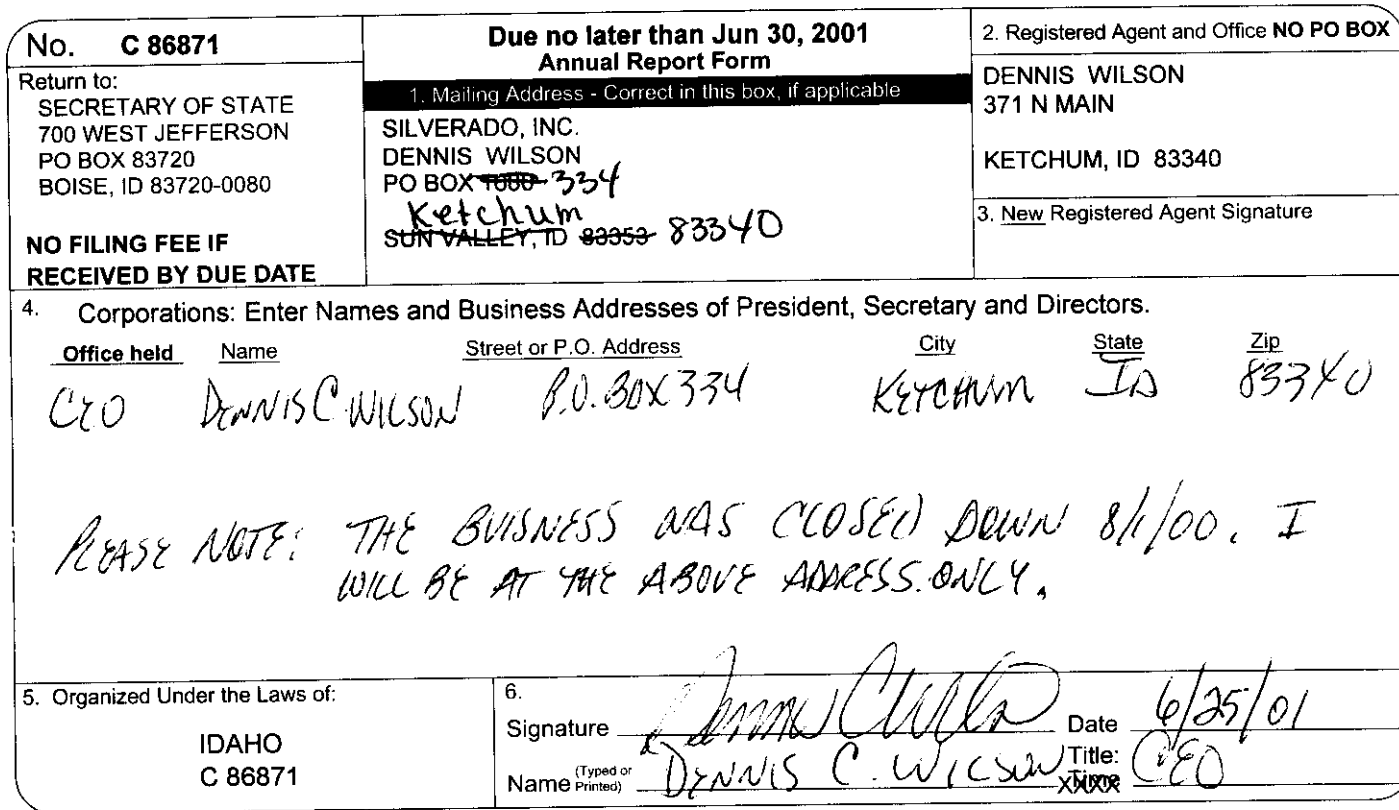 No. C 86871
Return to:
SECRETARY OF STATE
700 WEST JEFFERSON
PO BOX 83720
BOISE, ID 83720-0080
NO FILING FEE IF
RECEIVED BY DUE DATE
Due no later than Jun 30, 2001
Annual Report Form
1. Mailing Address - Correct in this box, if applicable
SILVERADO, INC.
DENNIS WILSON
PO BOX 1080 334
Ketchum
SUN VALLEY, ID 83353 83340
2. Registered Agent and Office NO PO BOX
DENNIS WILSON
371 N MAIN
KETCHUM, ID 83340
3. New Registered Agent Signature
4. Corporations: Enter Names and Business Addresses of President, Secretary and Directors.
Office held Name Street or P.O. Address City State Zip
CEO DENNIS C WILSON P.O. BOX 334 KETCHUM ID 83340
PLEASE NOTE: THE BUISNESS WAS CLOSED DOWN 8/1/00. I
WILL BE AT THE ABOVE ADDRESS ONLY.
5. Organized Under the Laws of:
IDAHO
C 86871
6.
Signature Dennis C Wilson Date 6/25/01
Name (Typed or Printed) DENNIS C. WILSON Title: CEO